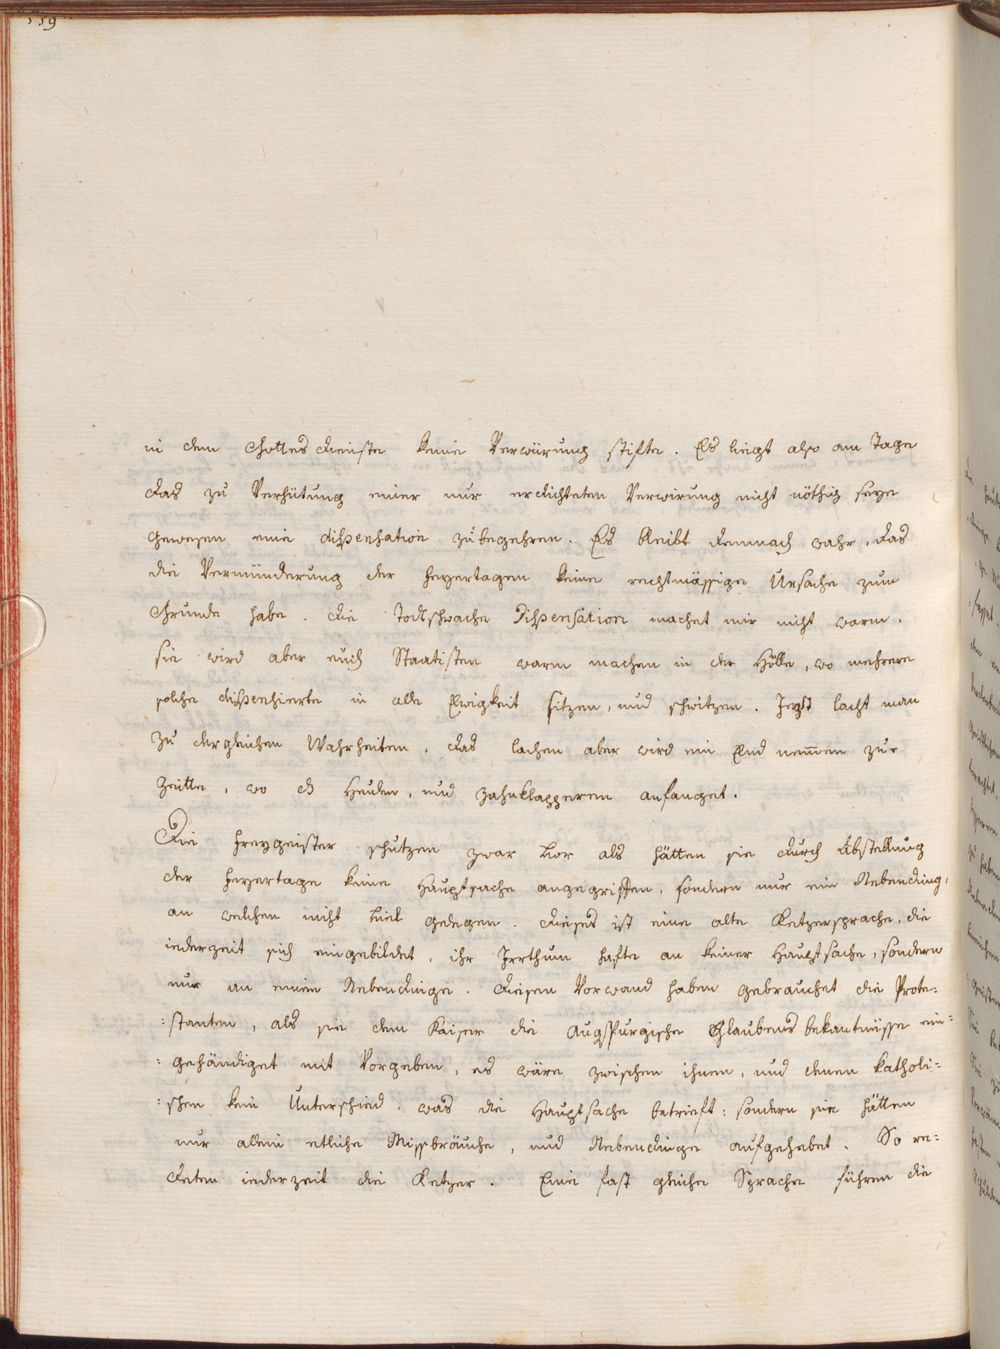 559
in dem Gottes dienste keine Verwürung stifte. Es liegt also am Tage
das zu Verhütung einer nur erdichteten Verwirung nicht nöthig seye
gewesen eine dispensation zubegehren. Es bleibt demnach wahr, das
die Verminderung der feyertagen keine rechtmässige Ursache zum
Grunde habe. die Todtschwache Dispensation machet mir nicht warm.
sie wird aber euch Staatisten warm machen in der Hölle, wo mehrere
solche dispensierte in alle Ewigkeit sitzen, und schwitzen. Jezt lacht man
zu dergleichen Wahrheiten, das lachen aber wird ein End nemmen zur
Zeitte, wo es Heulen, und zahnklapperen anfanget.
Die freygeister schutzen zwar vor als hätten sie durch Abstellung
der feyertage keine Hauptsache angegriffen, sondern nur ein Nebending,
an welchen nicht viel gelegen. dieses ist eine alte Ketzersprache, die
iederzeit sich eingebildet, ihr Irrthum hafte an keiner Hauptsache, sondern
nur an einem Nebendinge. diesen Vorwand haben gebrauchet die Prote=
=stanten, als sie dem Kaiser die Augspurgische Glaubens bekantnüsse ein=
=gehändiget mit Vorgeben, es wäre zwischen ihnen, und denen katholi=
=schen kein Unterschied, was die Hauptsache betrieft: sondern sie hätten
nur allein etliche Missbräuche, und Nebendinge aufgehebet. So re=
deten iederzeit die Ketzer. Eine fast gleiche Sprache führen die